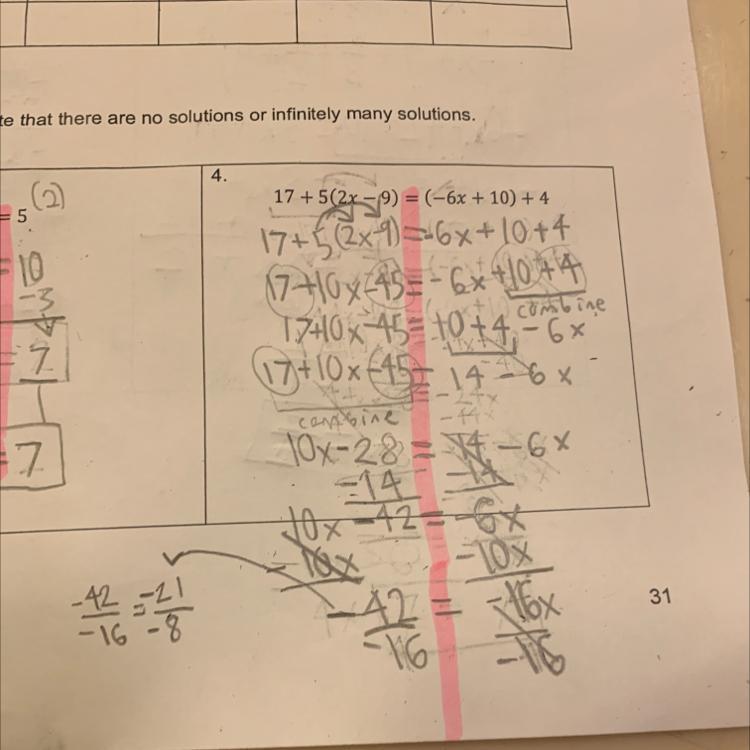 te that there are no solutions or infinitely many solutions.
= 5 (2)
= 10
-3
= 7
= 7
4.
17 + 5(2x − 9) = (−6x + 10) + 4
17+5(2x-9)=-6x+10+4
17+10x-45=-6x+10+4
combine
17+10x-45=10+4-6x
17+10x-45=14-6x
combine
10x-28=14-6x
-14 -14
10x-42=-6x
-10x -10x
-42 = -16x
-16 -16
-42 = -21
-16 -8
31